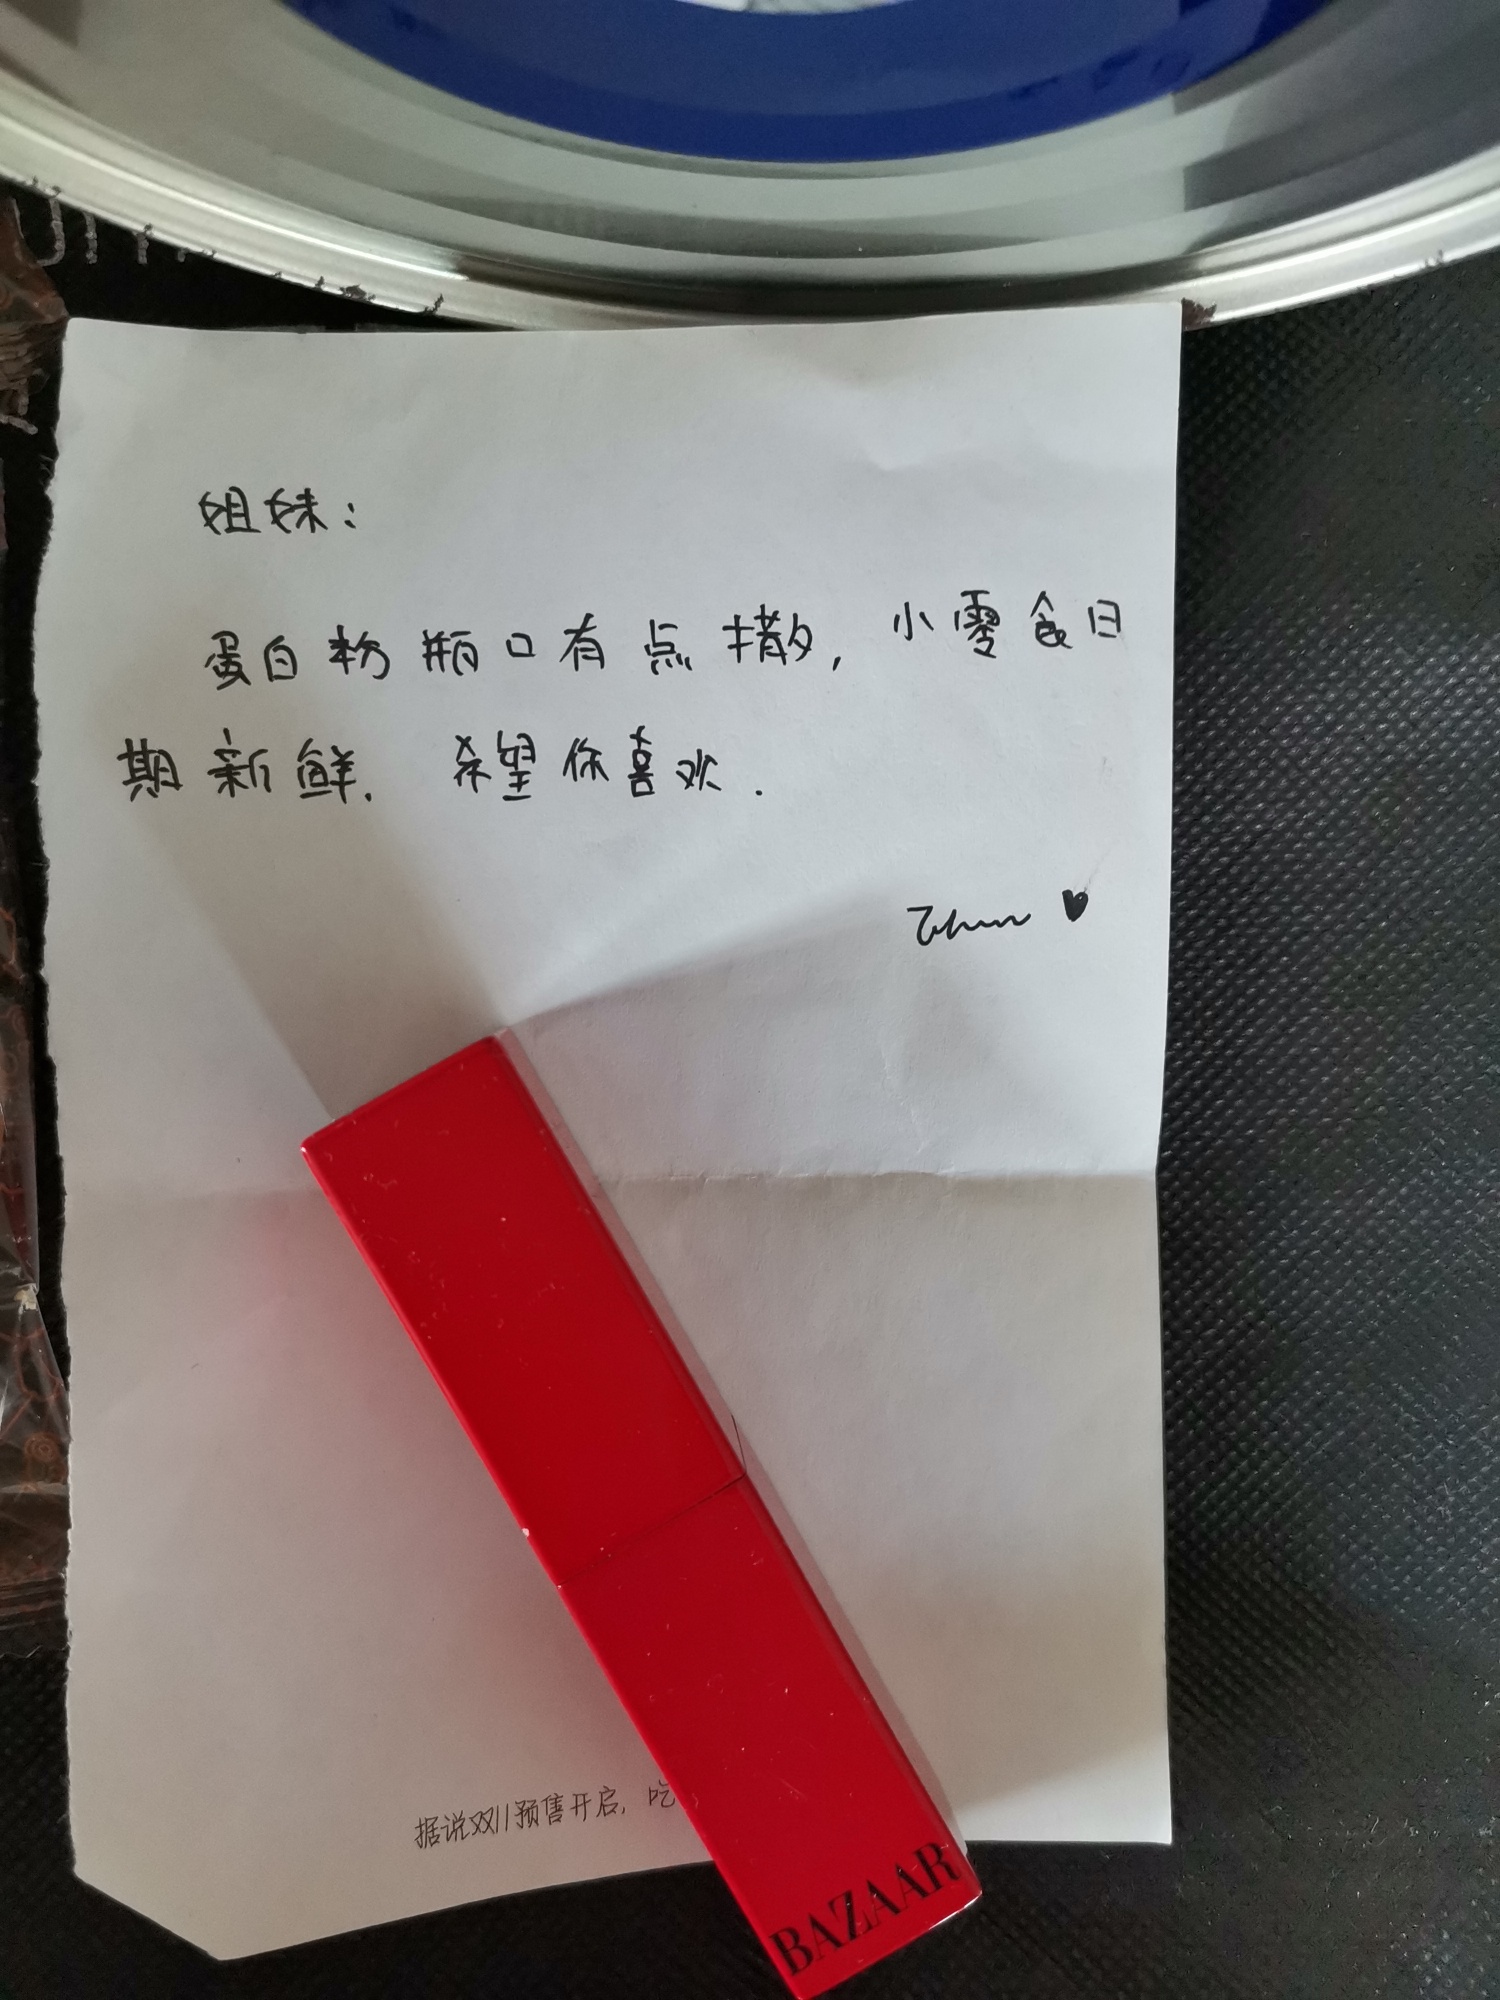 姐妹：
蛋白粉瓶口有点撒，小零食日
期新鲜．希望你喜欢．
据说双11预售开启，吃
BAZAAR